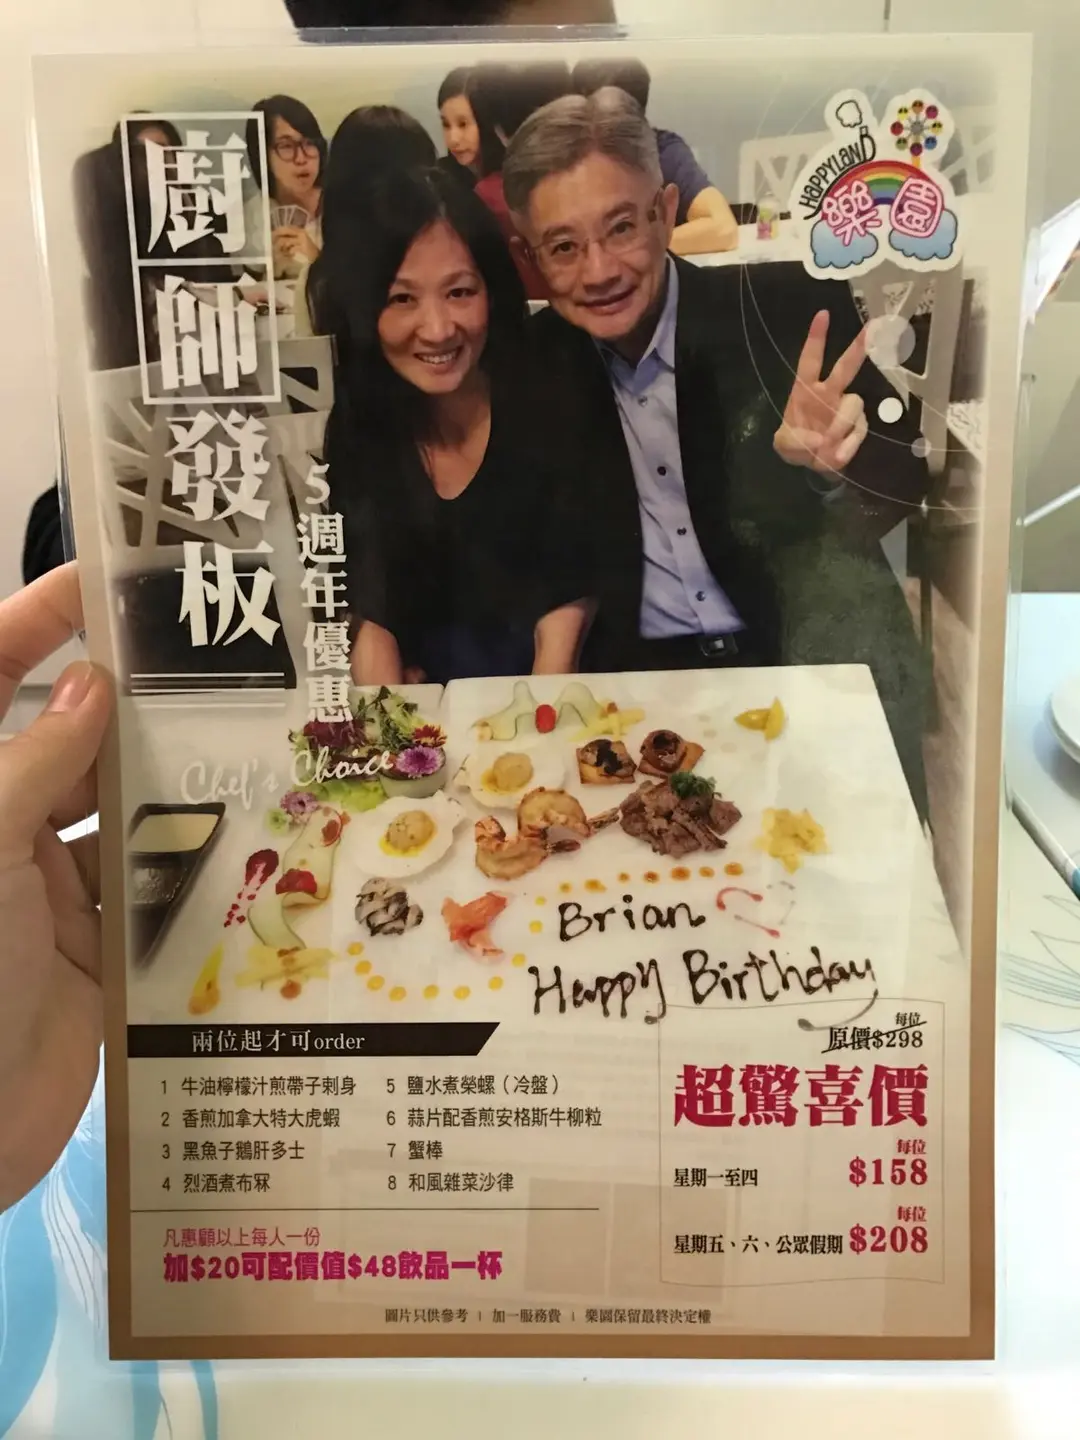 廚師發板
5週年優惠
HAPPYLAND
樂園
Chef's Choice
Brian
Happy Birthday
兩位起才可order
1 牛油檸檬汁煎帶子刺身
2 香煎加拿大特大虎蝦
3 黑魚子鵝肝多士
4 烈酒煮布冧
5 鹽水煮榮螺（冷盤）
6 蒜片配香煎安格斯牛柳粒
7 蟹棒
8 和風雜菜沙律
每位
原價$298
超驚喜價
每位
星期一至四 $158
每位
星期五、六、公眾假期 $208
凡惠顧以上每人一份
加$20可配價值$48飲品一杯
圖片只供參考 | 加一服務費 | 樂園保留最終決定權